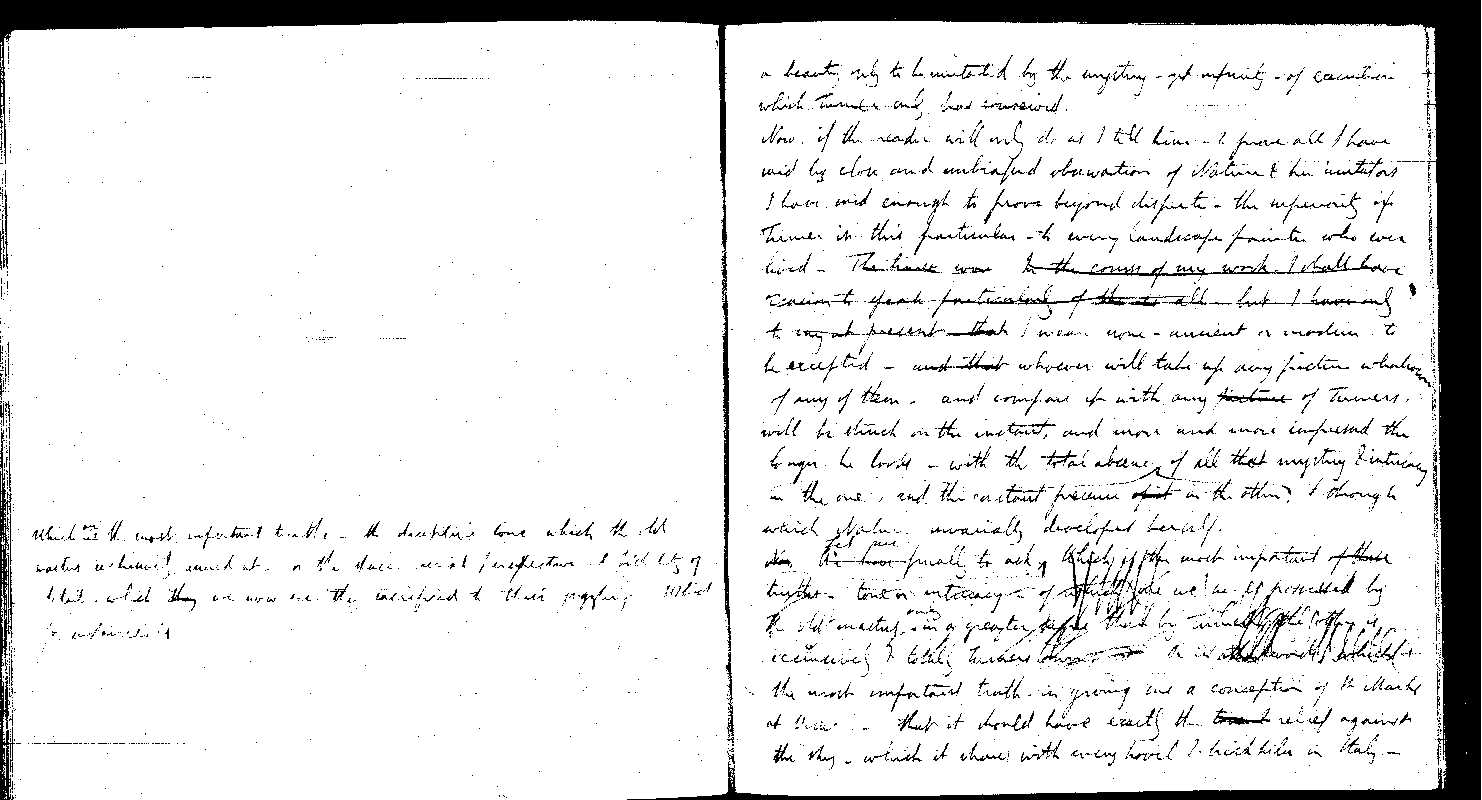 which is the most important truth, - the deceptive tone which the old
masters exclusively aimed at. or the space aerial perspective & fidelity of
detail which they we now see they sacrificed to their juggling What
for instance is
a beauty only to be imitated by the mystery - yet infinity - of execution
which Turner only has conceived.
Now. if the reader will only do as I tell him - & prove all I have
said by close and unbiassed observation of Nature & her imitators
I have said enough to prove beyond dispute - the superiority of
Turner in this particular - to every landscape painter who ever
lived - The have won In the course of my work. I shall have
occasion to speak particularly of the all - but I have only
to say at present that I mean none - ancient or modern to
be excepted - and that whoever will take up any picture whatsoever
of any of them. and compare it with any picture of Turners.
will be struck on the instant, and more and more impressed the
longer he looks - with the total absence of all that mystery & intricacy
in the one, and the constant presence of it in the other, & through
which Nature invariably developes herself.
Now We have yet finally to ask, which is the most important of these
truths - tone or intricacy - of which the one we possessed by
the old masters, only in a greater degree than by Turner the other is
exclusively & totally Turners Or in other words, which is
the most important truth in giving me a conception of St Marks
at Venice - that it should have exactly the relief against
the sky - which it shares with every hovel & brick kiln in Italy -